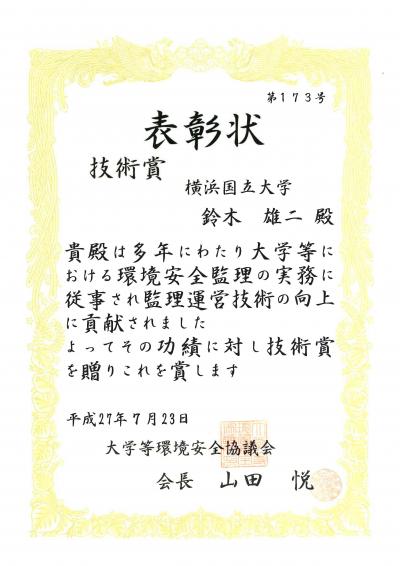 第173号
表彰状
技術賞
横浜国立大学
鈴木 雄二 殿
貴殿は多年にわたり大学等に
おける環境安全監理の実務に
従事され監理運営技術の向上
に貢献されました
よってその功績に対し技術賞
を贈りこれを賞します
平成27年7月23日
大学等環境安全協議会
会長 山田 悦